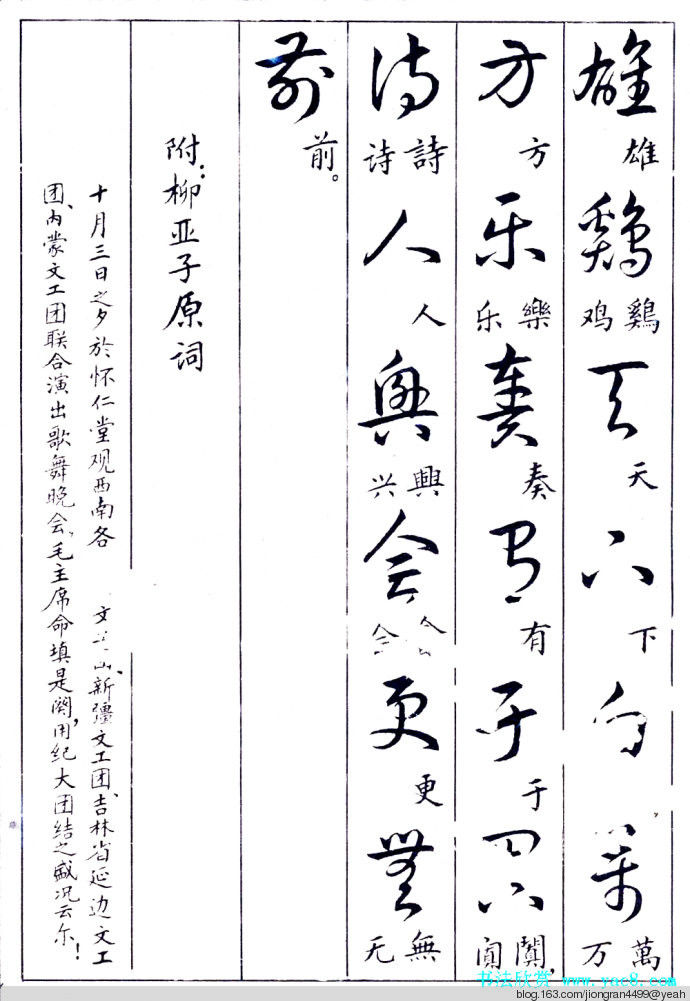 雄 雄 鷄 鷄 鸡 天 天 下 下 萬 萬 万
方 方 乐 樂 乐 奏 奏 有 有 于 于 阗 闐, 阗
诗 詩 诗 人 人 興 興 兴 会 更 更 無 無 无
前 前。
附：柳亚子原词
十月三日之夕於怀仁堂观西南各 文 新疆文工团、吉林省延边文工
团、内蒙文工团联合演出歌舞晚会，毛主席命填是阕，用纪大团结之盛况云尔！
书法欣赏 www.yac8.com
blog.163.com/jiongran4499@yeah